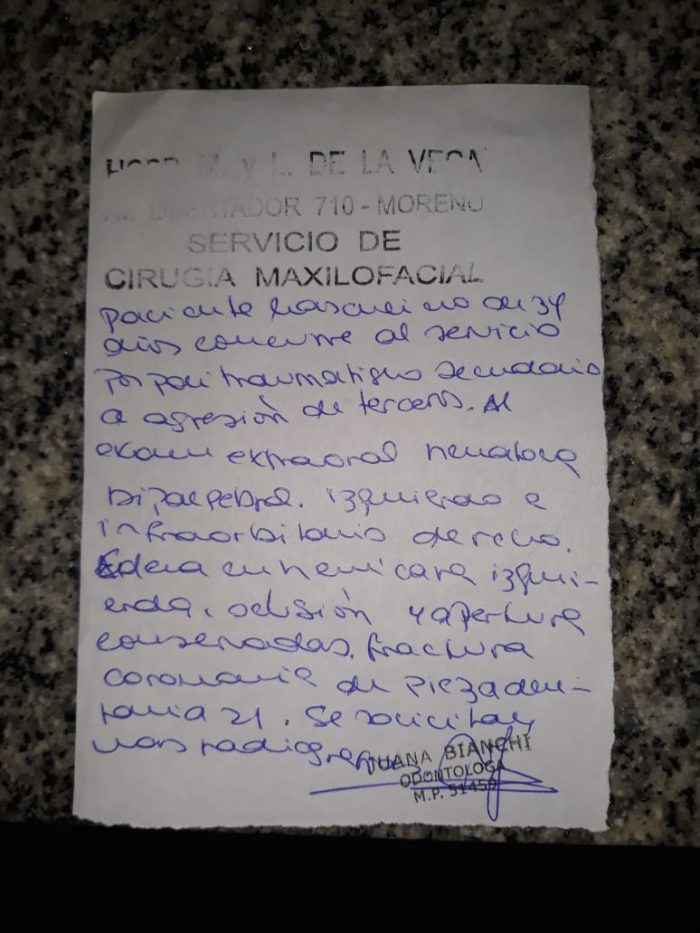 HOSP. M. y L. DE LA VEGA
AV. LIBERTADOR 710 - MORENO
SERVICIO DE
CIRUGIA MAXILOFACIAL
paciente masculino de 34
años concurre al servicio
por politraumatismo secundario
a agresión de terceros. Al
examen extraoral hematoma
bipalpebral. izquierdo e
infraorbitario derecho.
Edema en hemicara izqui-
erda. oclusión y apertura
conservadas. fractura
coronaria de pieza den-
taria 21. Se solicitan
radiografías
JUANA BIANCHI
ODONTOLOGA
M.P. 51459